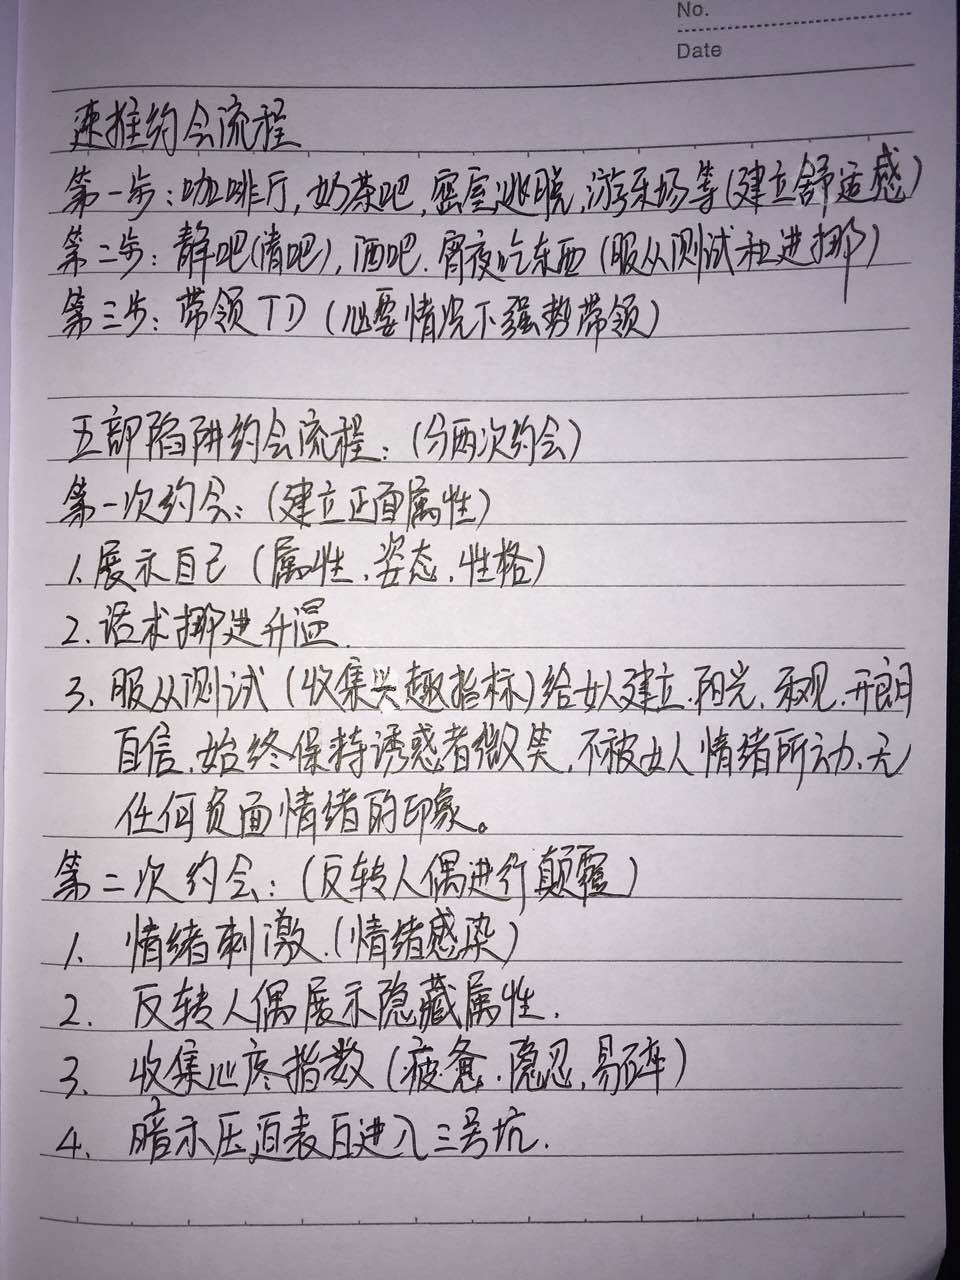 No.
Date
速推约会流程
第一步：咖啡厅，奶茶吧，密室逃脱，游乐场等（建立舒适感）
第二步：静吧（清吧），酒吧．宵夜吃东西（服从测试和进挪）
第三步：带领TD（必要情况下强势带领）
五部陷阱约会流程：（分两次约会）
第一次约会：（建立正面属性）
1.展示自己（属性．姿态．性格）
2.话术挪进升温
3.服从测试（收集兴趣指标）给女人建立．阳光．乐观．开朗
自信．始终保持诱惑者微笑．不被女人情绪所动、无
任何负面情绪的印象。
第二次约会：（反转人偶进行颠覆）
1. 情绪刺激．（情绪感染）
2. 反转人偶展示隐藏属性．
3. 收集心疼指数（疲惫．隐忍．易碎）
4. 暗示压迫表白进入三号坑．